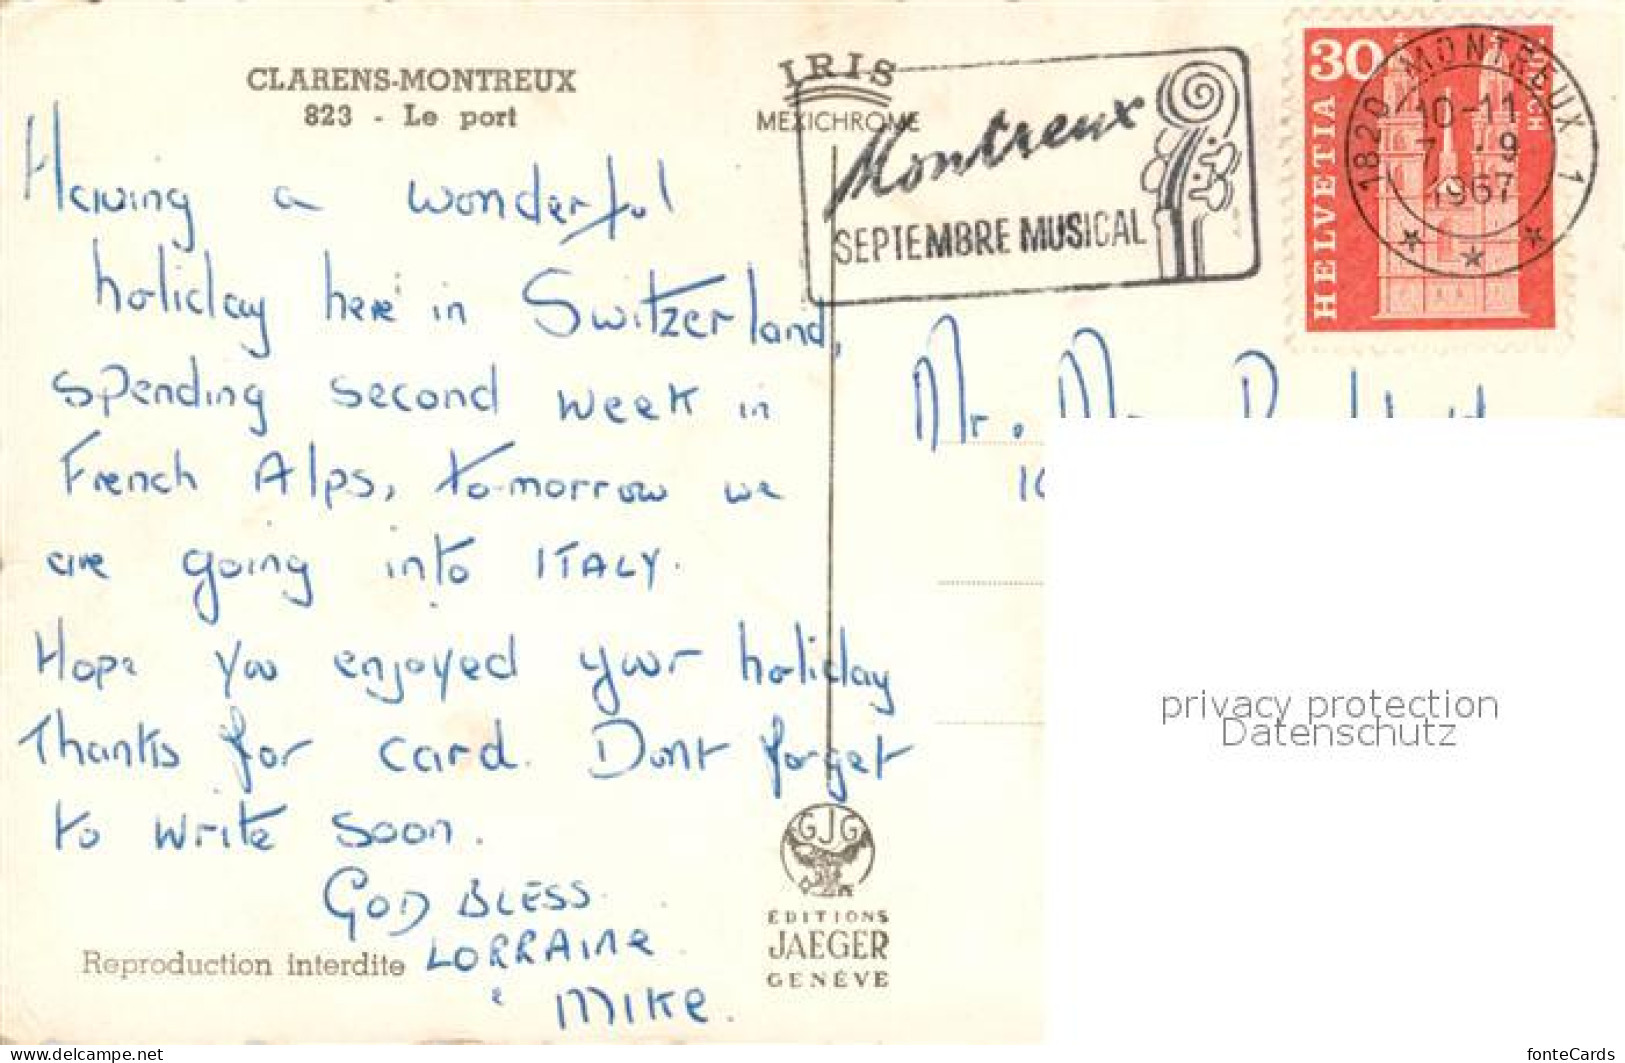 CLARENS-MONTREUX
823 - Le port
IRIS
MEXICHROME
Montreux
SEPTEMBRE MUSICAL
30
HELVETIA
1820 MONTREUX 1
10-11
7 .-9
1967
Having a wonderful
holiday here in Switzerland,
spending second week in
French Alps, to-morrow we
are going into ITALY.
Hope you enjoyed your holiday
Thanks for card. Dont forget
to write soon.
GOD BLESS.
LORRAINE
MIKE.
Mr.
privacy protection
Datenschutz
GJG
ÉDITIONS
JAEGER
GENÈVE
Reproduction interdite
www.delcampe.net
fonteCards